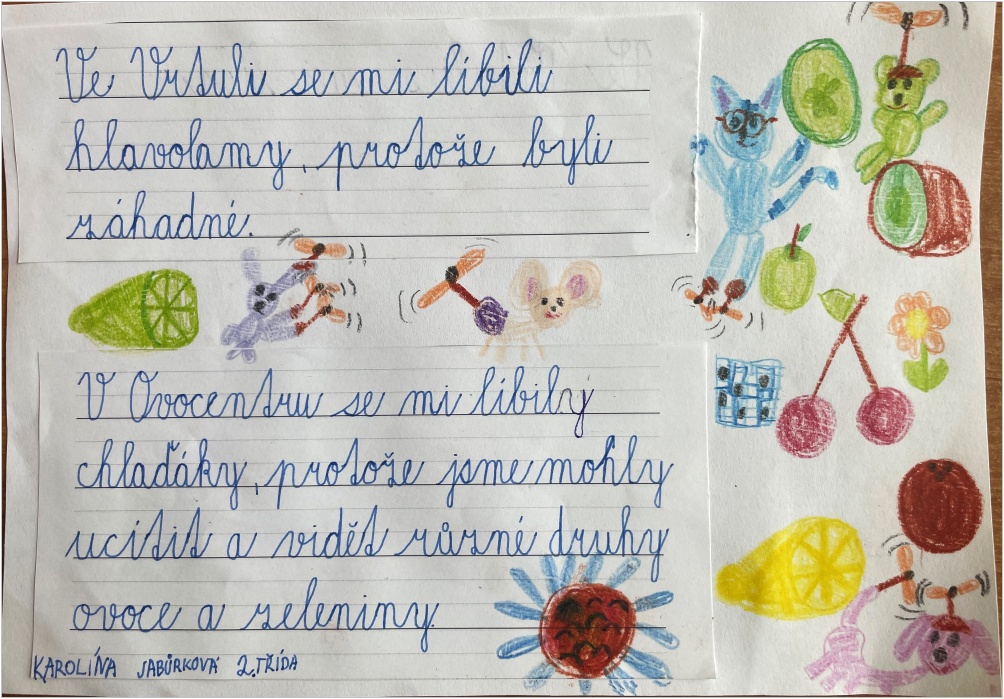 Ve Vrtuli se mi líbili
hlavolamy, protože byli
záhadné.
V Ovocentru se mi líbily
chlaďáky, protože jsme mohly
ucítit a vidět různé druhy
ovoce a zeleniny.
KAROLÍNA JABŮRKOVÁ 2.TŘÍDA